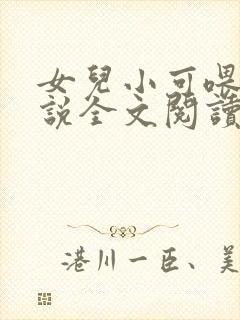 女兒小可喂
說全文閱讀
港川一臣、美